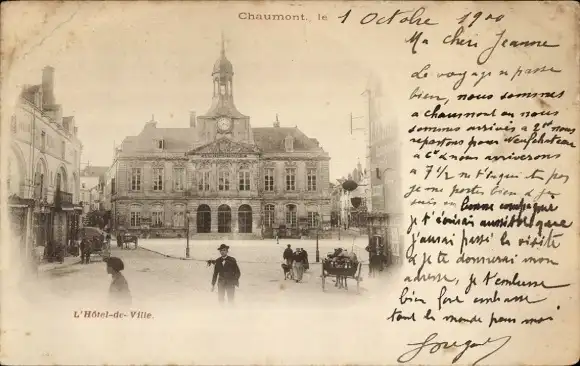 Chaumont, le 1 Octobre 1900
Ma chère Jeanne
Le voyage se passe
bien, nous sommes
a chaumont ou nous
sommes arrivés a 2h nous
repartons pour Neufchateau
a 6h & nous arriverons
a 7 1/2 ne t'inquiete pas
je me porte bien & je
suis en bonne compagnie
je t'écrirai aussitôt que
j'aurai passé la visite
& je te donnerai mon
adresse, je t'embrasse
bien fort embrasse
tout le monde pour moi
L'Hôtel-de-Ville.